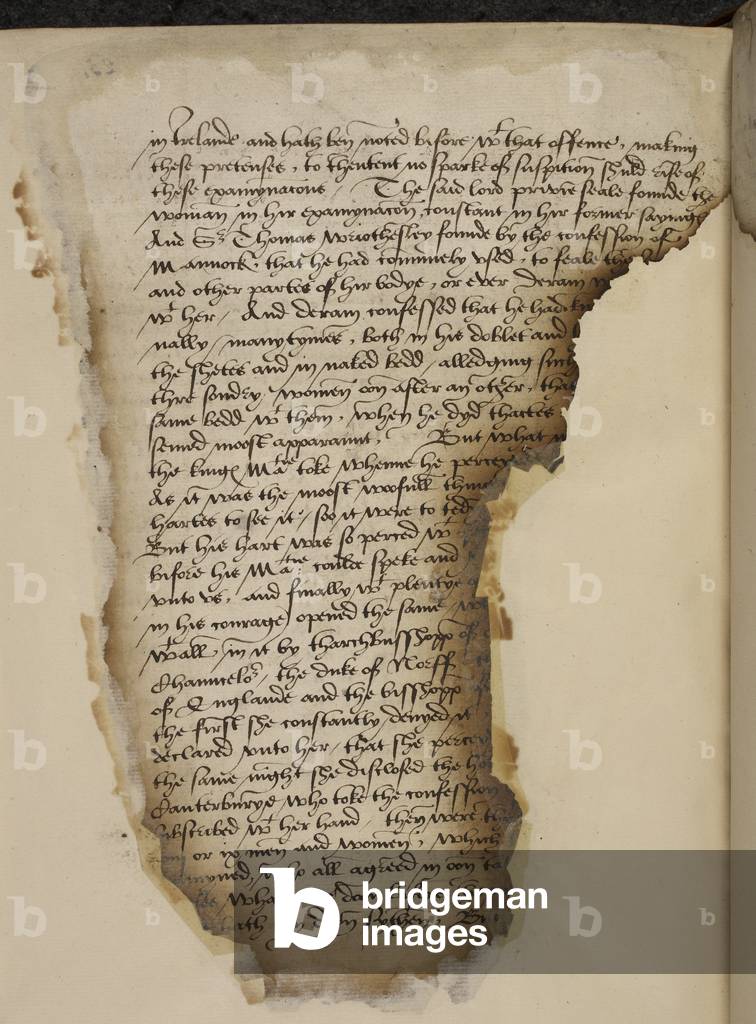 in Irelande and hath ben noted before wt that offence, making
these pretenses, to thentent no sparke of suspition shuld rise of
these examynacons / The said lord privie seale founde the
woman in hir examynacon, constant in hir former sayings
And Sr Thomas Wriothesley founde by the confession of
Mannock, that he had comnnely vsed, to feale the
and other partes of hir bodye, or ever Deram
wt her / And Deram confessed that he had
nally, many tymes, both in his doblet and
the shetes and in naked bedd / alledging such
thre sondry women oon after an other, that
same bedd wt them, when he dyd thactes
semed moost apparaunt, But what
the kings Matie toke whenne he
As it was the moost woofull
hartes to see it / soo it were to
But his hart was so perced wt
before his Matie coulde speke and
vnto vs, and fynally wt plentye
in his courage opened the same
wtall in it by tharchbisshopp of
Chauncelor, the duke of Norff
of Englande and the bisshopp
the first she constantly denyed it
declared vnto her, that she
the same night she disclosed the
Canterburye, who toke the confession
subscribed wt her hand, then were the
or ix men and women, which
all agreed in oon
wha
hath
bridgeman
images